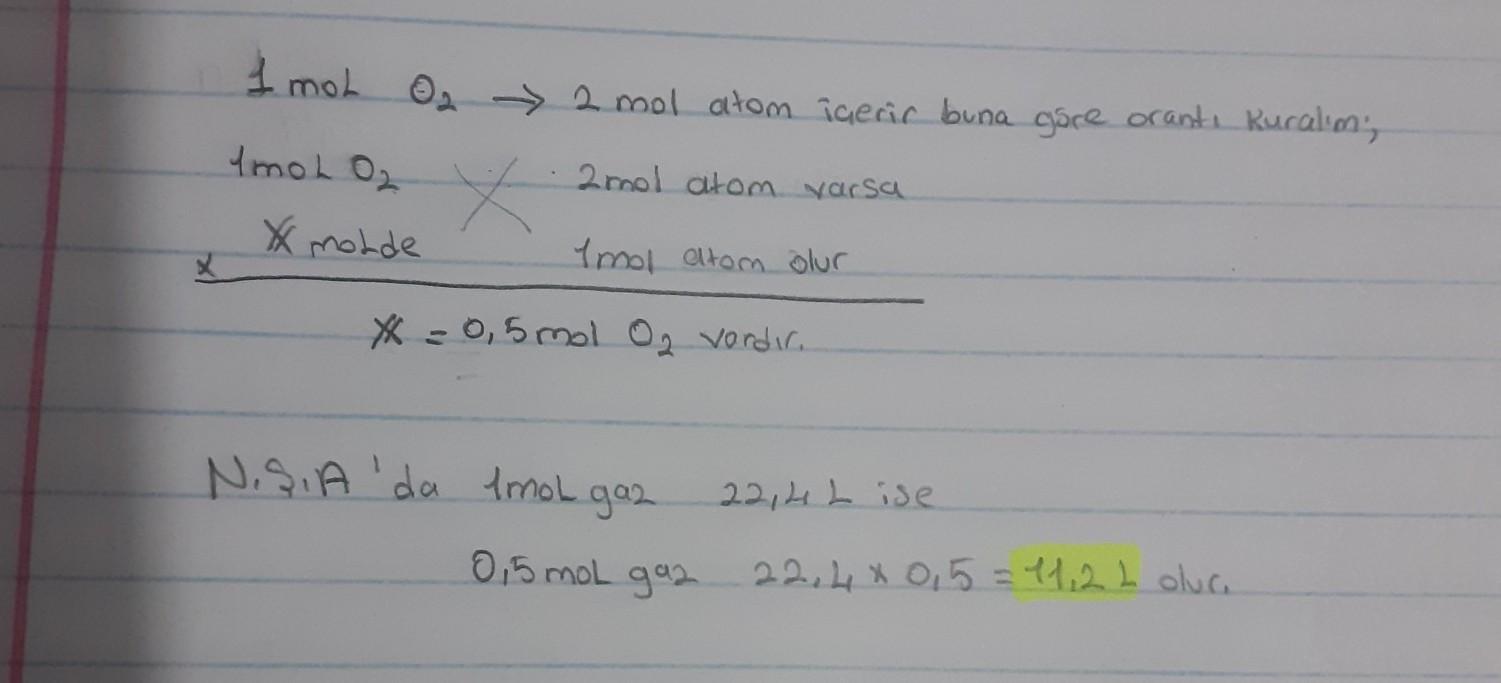 1 mol O₂ → 2 mol atom içerir buna göre orantı kuralım;
1mol O₂ 2mol atom varsa
X molde 1mol atom olur
x
X = 0,5 mol O₂ vardır.
N.Ş.A 'da 1mol gaz 22,4 L ise
0,5 mol gaz 22,4 x 0,5 = 11,2 L olur.